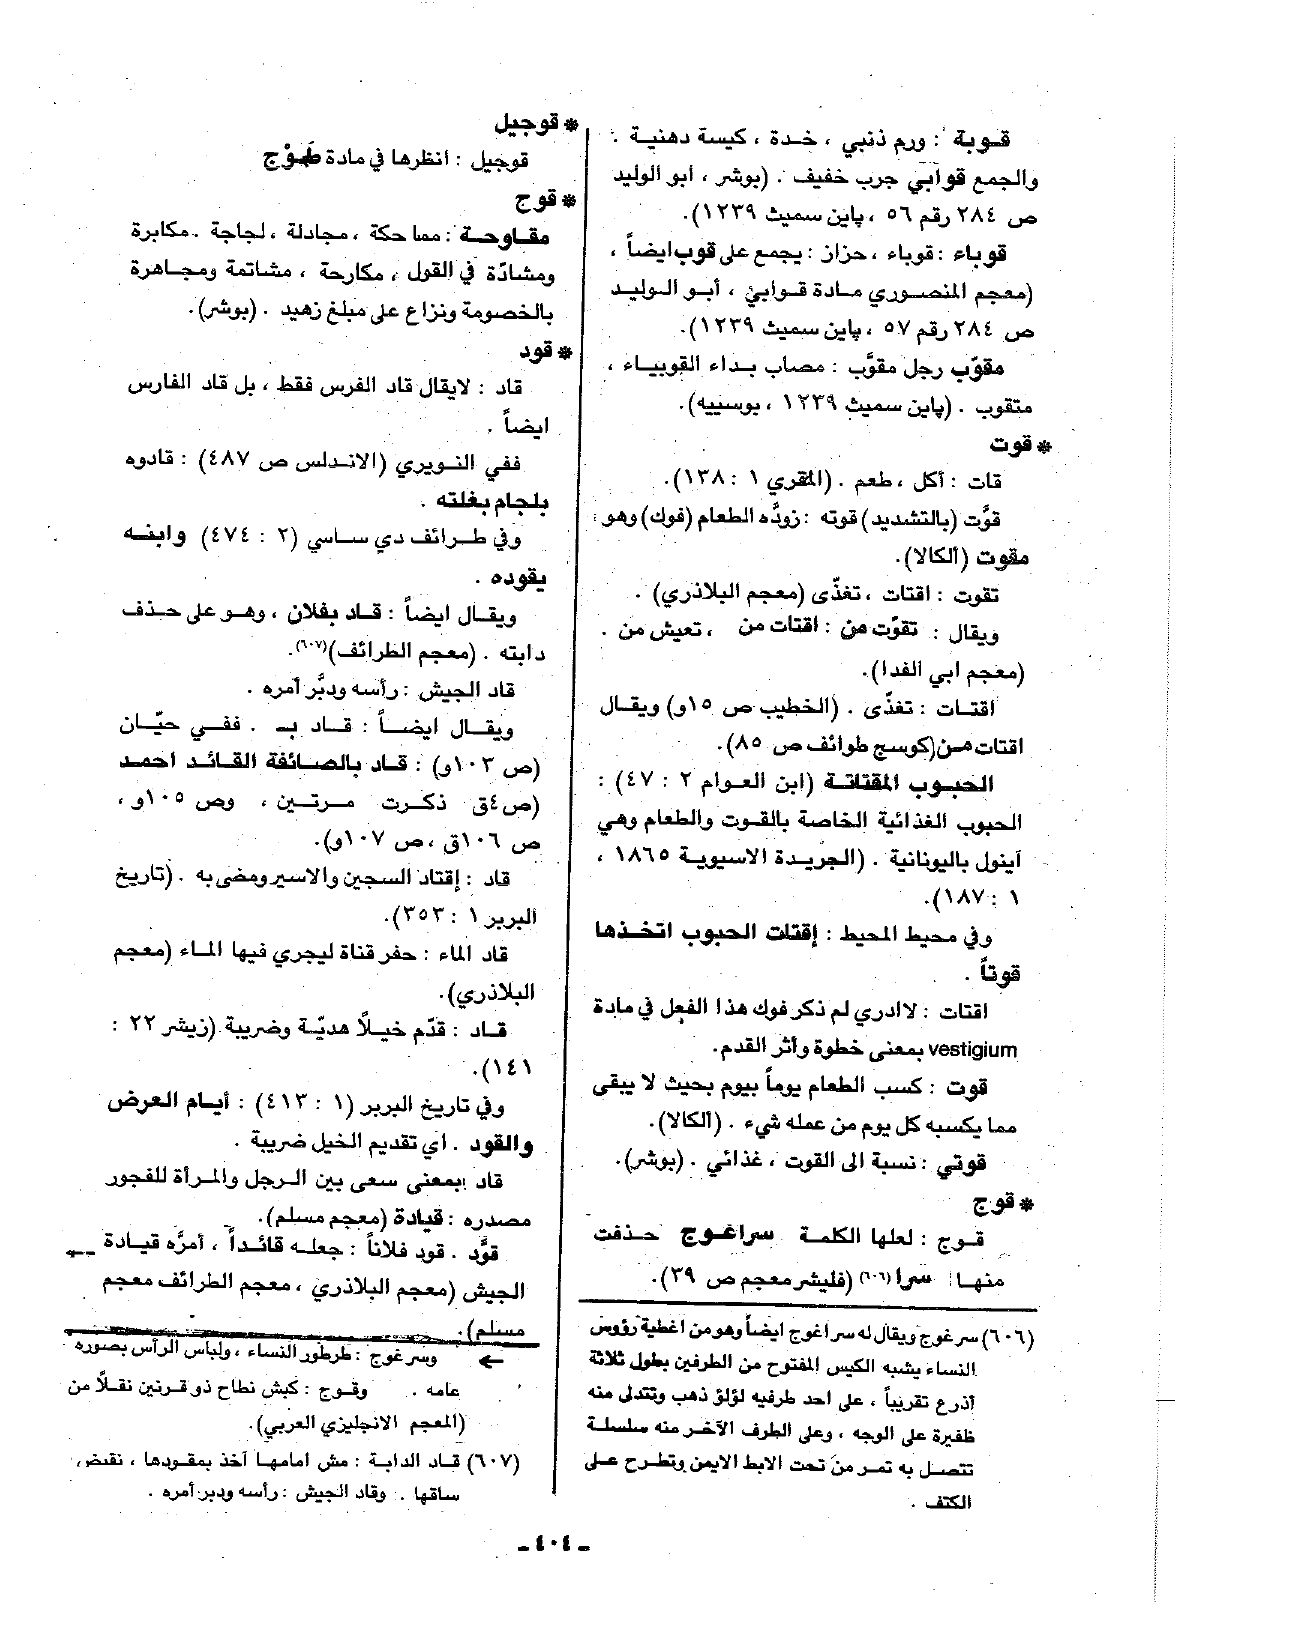 قوبة : ورم ذنبي ، خدة ، كيسة دهنية .
والجمع قوابي جرب خفيف . (بوشر ، أبو الوليد
ص ٢٨٤ رقم ٥٦ ، پاين سميث ١٢٣٩).
قوباء : قوباء ، حزاز : يجمع على قوب ايضاً ،
(معجم المنصوري مادة قوابئ ، أبو الوليد
ص ٢٨٤ رقم ٥٧ ، پاين سميث ١٢٣٩).
مقوّب رجل مقوَّب : مصاب بداء القوبياء ،
متقوب . (پاين سميث ١٢٣٩ ، بوسييه).
* قوت
قات : أكل ، طعم . (المقري ١ : ١٣٨).
قوَّت (بالتشديد) قوته : زودَّه الطعام (فوك) وهو :
مقوت (ألكالا).
تقوت : اقتات ، تغذّى (معجم البلاذري) .
ويقال : تقوّت من : اقتات من ، تعيش من .
(معجم ابي الفدا).
اقتات : تغذّى . (الخطيب ص ١٥و) ويقال
اقتات من (كوسج طوائف ص ٨٥).
الحبوب المقتاتة (ابن العوام ٢ : ٤٧) :
الحبوب الغذائية الخاصة بالقوت والطعام وهي
آينول باليونانية . (الجريدة الاسيوية ١٨٦٥ ،
١ : ١٨٧).
وفي محيط المحيط : إقتات الحبوب اتخذها
قوتاً .
اقتات : لاادري لم ذكر فوك هذا الفعل في مادة
vestigium بمعنى خطوة وأثر القدم.
قوت : كسب الطعام يوماً بيوم بحيث لا يبقى
مما يكسبه كل يوم من عمله شيء . (ألكالا).
قوتي : نسبة الى القوت ، غذائي . (بوشر).
* قوج
قوج : لعلها الكلمة سراغوج حذفت
منها : سرا (٦٠٦) (فليشر معجم ص ٣٩).
(٦٠٦) سرغوج ويقال له سراغوج ايضاً وهو من اغطية رؤوس
النساء يشبه الكيس المفتوح من الطرفين بطول ثلاثة
أذرع تقريباً ، على احد طرفيه لؤلؤ ذهب وتتدلى منه
ظفيرة على الوجه ، وعلى الطرف الآخر منه سلسلة
تتصل به تمر من تحت الابط الايمن وتطرح على
الكتف .
* قوجيل
قوجيل : انظرها في مادة طَهَوْج
* قوح
مقاوحة : مماحكة ، مجادلة ، لجاجة . مكابرة
ومشادّة في القول ، مكارحة ، مشاتمة ومجاهرة
بالخصومة ونزاع على مبلغ زهيد . (بوشر).
* قود
قاد : لايقال قاد الفرس فقط ، بل قاد الفارس
ايضاً .
ففي النويري (الاندلس ص ٤٨٧) : قادوه
بلجام بغلته .
وفي طرائف دي ساسي (٢ : ٤٧٤) وابنه
يقوده .
ويقال ايضاً : قاد بفلان ، وهو على حذف
دابته . (معجم الطرائف)(٦٠٧).
قاد الجيش : رأسه ودبَّر أمره .
ويقال ايضاً : قاد بـ . ففي حيّان
(ص ١٠٣و) : قاد بالصائفة القائد احمد
(ص ٤ق ذكرت مرتين ، وص ١٠٥و ،
ص ١٠٦ق ، ص ١٠٧و).
قاد : إقتاد السجين والاسير ومضى به . (تاريخ
البربر ١ : ٣٥٣).
قاد الماء : حفر قناة ليجري فيها الماء (معجم
البلاذري).
قاد : قدّم خيلاً هديّة وضريبة (زيشر ٢٢ :
١٤١).
وفي تاريخ البربر (١ : ٤١٣) : أيام العرض
والقود . أي تقديم الخيل ضريبة .
قاد بمعنى سعى بين الرجل والمرأة للفجور
مصدره : قيادة (معجم مسلم).
قوَّد . قود فلاناً : جعله قائداً ، أمرَّه قيادة
الجيش (معجم البلاذري ، معجم الطرائف معجم
مسلم).
← وسرغوج : طرطور النساء ، ولباس الرأس بصوره
عامه . وقوج : كبش نطاح ذو قرنين نقلاً من
(المعجم الانجليزي العربي).
(٦٠٧) قاد الدابة : مش امامها آخذ بمقودها ، نقيض ،
ساقها . وقاد الجيش : رأسه ودبر أمره .
- ٤٠٤ -